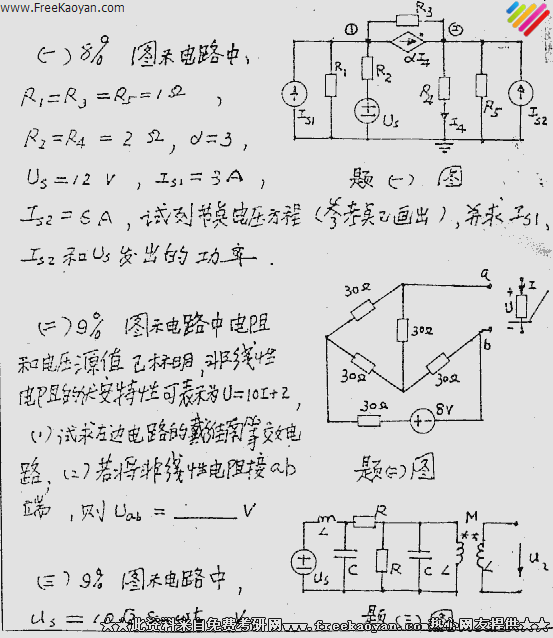 FreeKaoyan.com
www.freekaoyan.com
(一) 8% 图示电路中,
R₁=R₃=R₅=1Ω ,
R₂=R₄= 2 Ω, α=3,
Us=12 V , Is1=3A ,
Is2=6A, 试列节点电压方程 (参考点已画出), 并求 Is1、
Is2 和 Us 发出的功率.
① R₃ ②
αI₄
R₁ R₂ R₄ R₅
Is1 Us I₄ Is2
题(一) 图
(二) 9% 图示电路中电阻
和电压源值已标明, 非线性
电阻的伏安特性可表示为U=10I+2,
(1) 试求左边电路的戴维南等效电
路, (2) 若将非线性电阻接ab
端, 则 Uab = V
30Ω a + I
30Ω U
30Ω 30Ω b -
30Ω 8V
+ -
题(二)图
(三) 9% 图示电路中,
R M
L * *
Us C R C L L U₂
题(三)图
★★此资料来自免费考研网www.freekaoyan.com热心网友提供★★